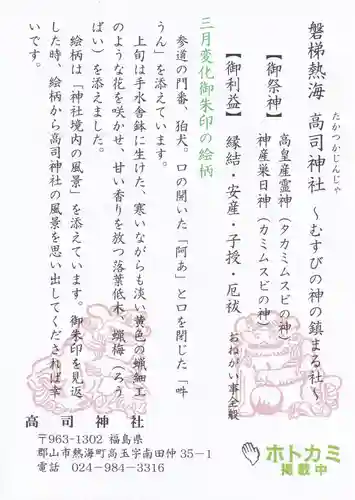 磐梯熱海 高司神社 ～むすびの神の鎮まる社～
たかつかじんじゃ
【御祭神】 高皇産霊神（タカミムスビの神）
神産巣日神（カミムスビの神）
【御利益】 縁結・安産・子授・厄祓 おねがい事全般
三月変化御朱印の絵柄
参道の門番、狛犬。口の開いた「阿あ」と口を閉じた「吽
うん」を添えています。
上旬は手水舎鉢に生けた、寒いながらも淡い黄色の蝋細工
のような花を咲かせ、甘い香りを放つ落葉低木、蝋梅（ろう
ばい）を添えました。
絵柄は「神社境内の風景」を添えています。御朱印を見返
した時、絵柄から高司神社の風景を思い出してくだされば幸
いです。
高司神社
〒963-1302 福島県
郡山市熱海町高玉字南田仲35－1
電話 024－984－3316
ホトカミ
掲載中